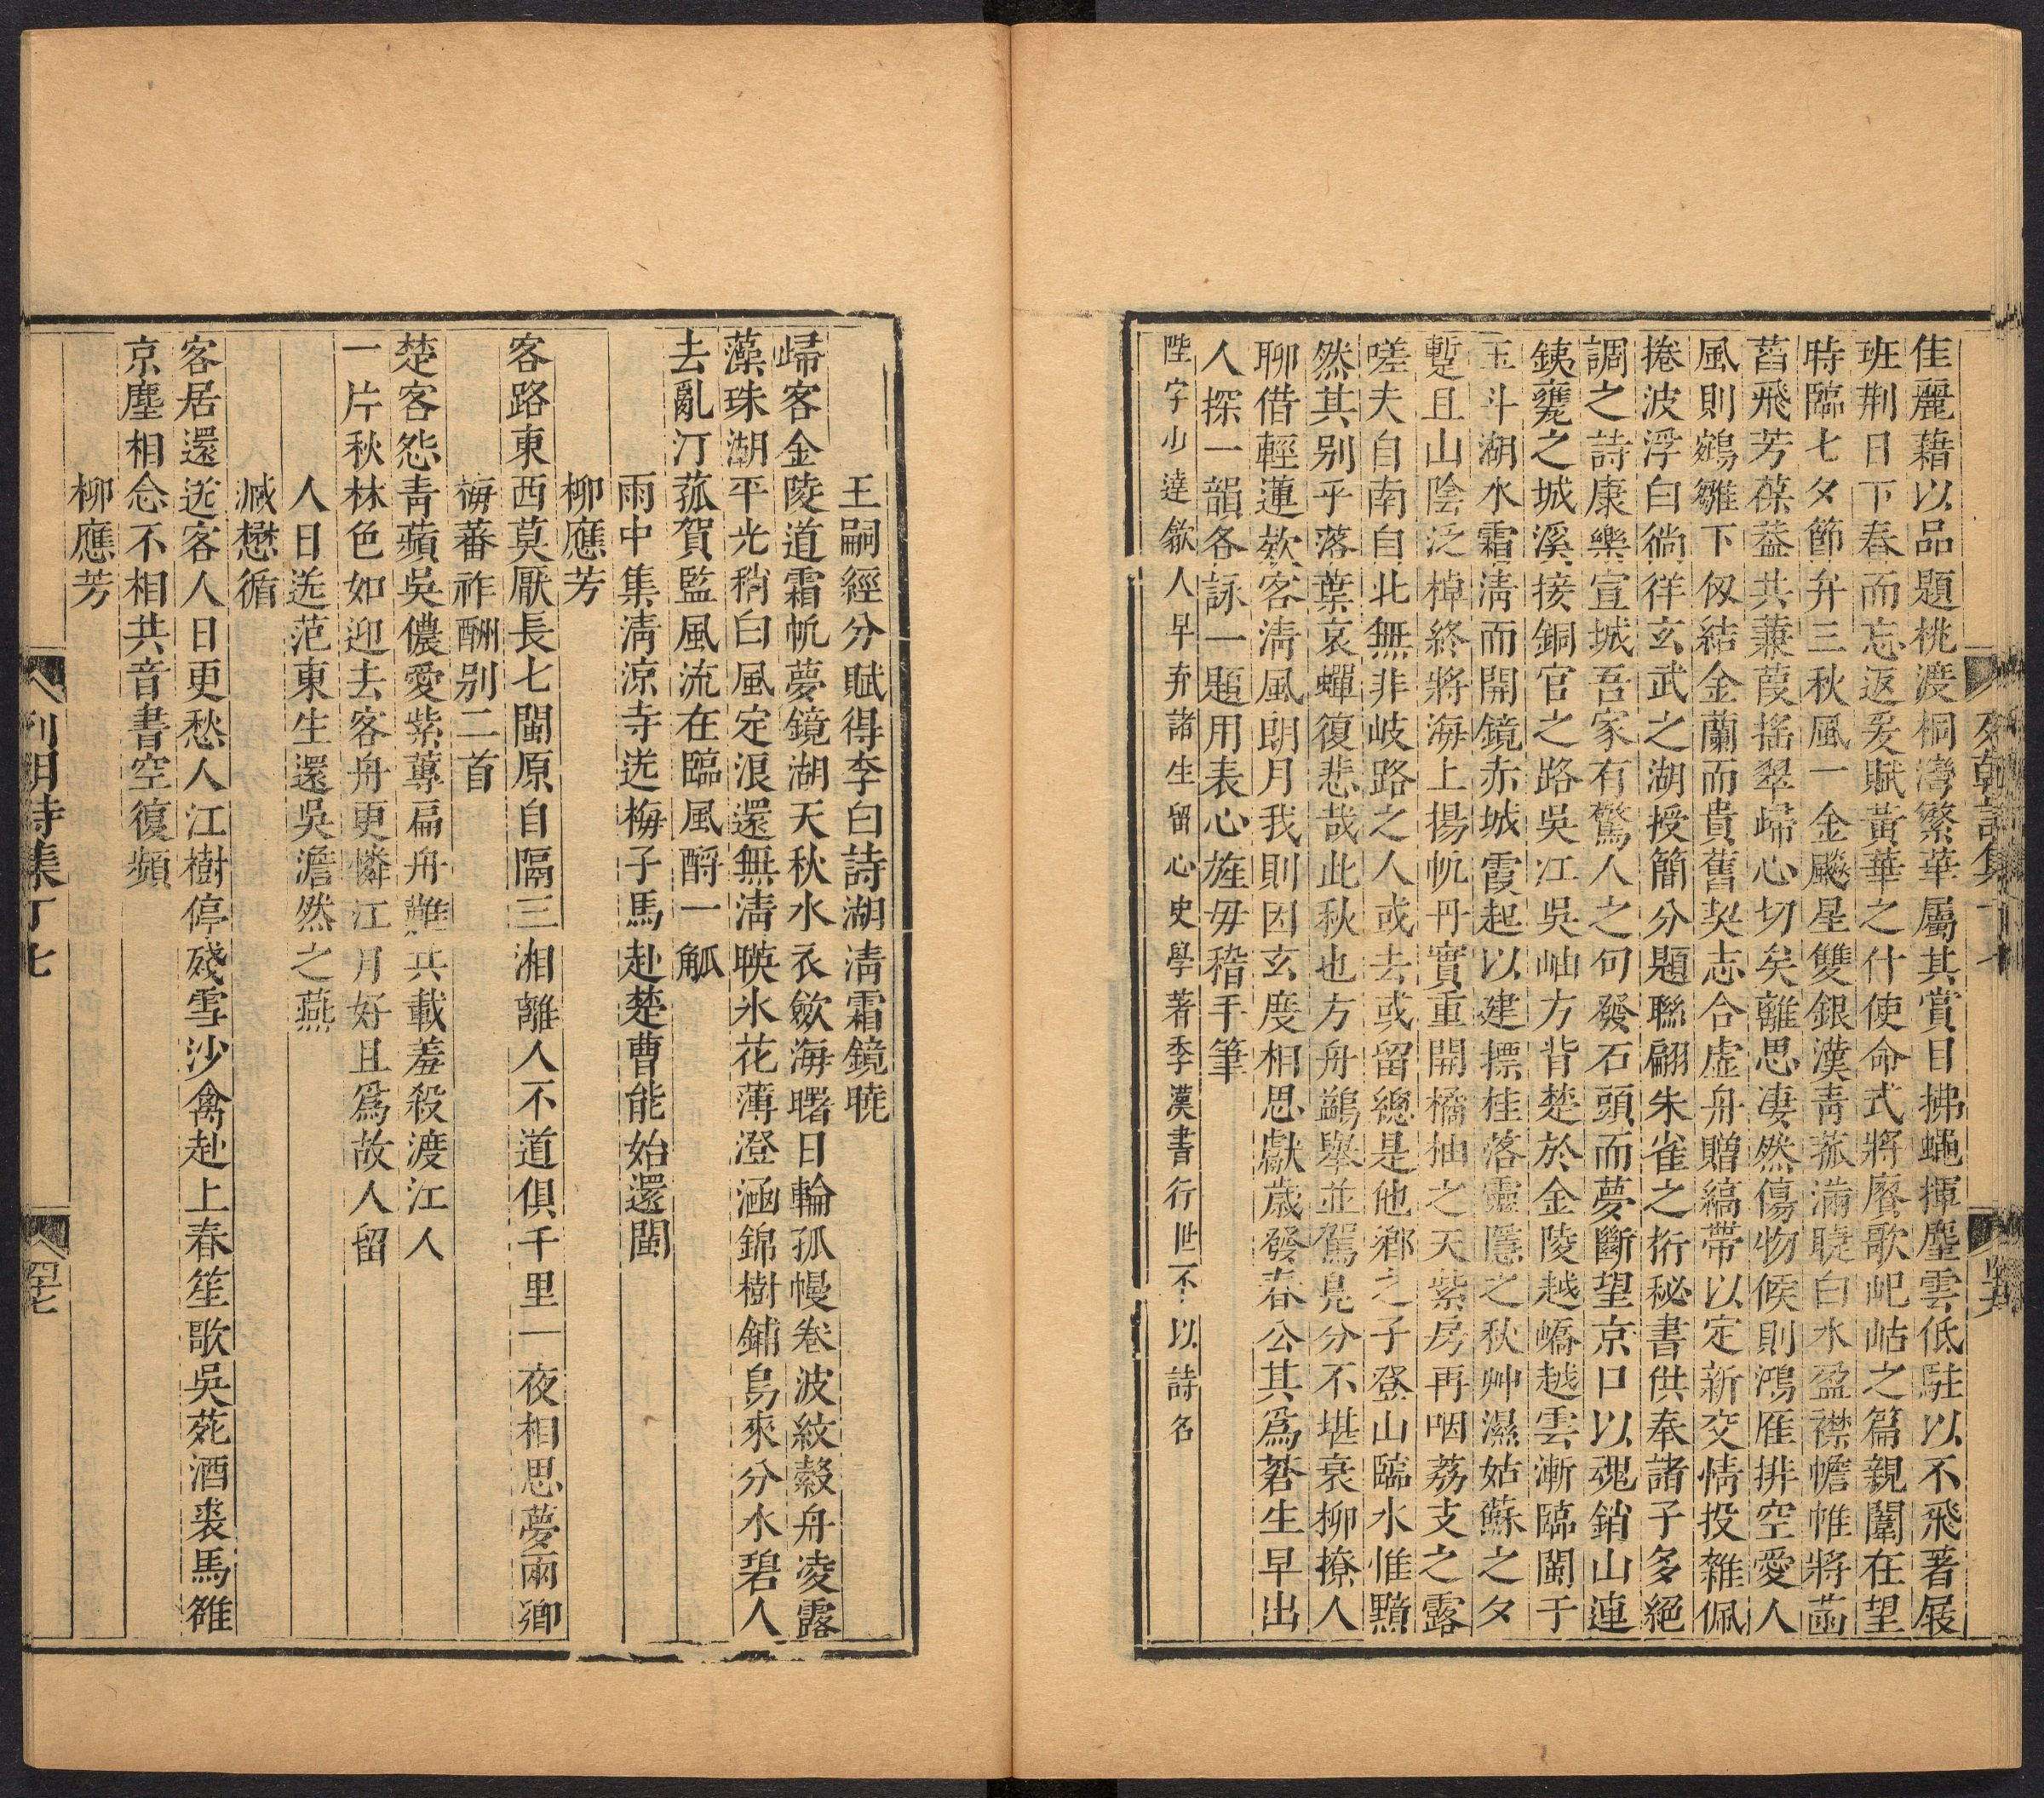 列朝詩集丁七
佳麗藉以品題桃渡桐灣繁華屬其賞目拂蠅揮麈雲低駐以不飛著展
班荆日下舂而忘返爰賦黃華之什使命式將賡歌屺岵之篇親闈在望
時臨七夕節弁三秋風一金飈星雙銀漢青菰滿曉白水盈襟幨帷將啚
菖飛芳葆葢共蒹葭搖翠歸心切矣離思凄然傷物候則鴻雁排空愛人
風則鵷雛下伮結金蘭而貴舊契志合虛舟贈縞帶以定新交情投雜佩
捲波浮白徜徉玄武之湖授簡分題聯翩朱雀之桁秘書供奉諸子多絕
調之詩康樂宣城吾家有驚人之句發石頭而夢斷望京口以魂銷山連
鉄甕之城溪接銅官之路吳江吳岫方背楚於金陵越嶠越雲漸臨閩于
玉斗湖水霜清而開鏡赤城霞起以建摽桂落靈隱之秋艸濕姑蘇之夕
蹔且山陰泛棹終將海上揚帆丹實重開橘柚之天紫房再咽荔支之露
嗟夫自南自北無非岐路之人或去或留總是他鄉之子登山臨水惟黯
然其别乎落葉哀蟬復悲哉此秋也方舟鷁舉並駕鳧分不堪衰柳撩人
聊借輕蓮欵客清風朗月我則因玄度相思獻歲發春公其爲蒼生早出
人探一韻各詠一題用表心旌毋稽手筆
陛字小逵歙人早弃諸生留心史學著季漢書行世不以詩名
王嗣經分賦得李白詩湖淸霜鏡曉
歸客金陵道霜帆夢鏡湖天秋水衣斂海曙日輪孤幔卷波紋縠舟凌露
藻珠湖平光稍白風定浪還無淸暎氷花薄澄涵錦樹鋪島來分水碧人
去亂汀菰賀監風流在臨風酹一觚
雨中集淸凉寺送梅子馬赴楚曹能始還閩
柳應芳
客路東西莫厭長七閩原自隔三湘離人不道俱千里一夜相思夢兩鄉
梅蕃祚酬别二首
楚客怨青蘋吳儂愛紫蓴扁舟難共載羞殺渡江人
一片秋林色如迎去客舟更憐江月好且爲故人留
人日送范東生還吳澹然之燕
臧懋循
客居還送客人日更愁人江樹停殘雪沙禽赴上春笙歌吳苑酒裘馬雒
京塵相念不相共音書空復頻
柳應芳
列朝詩集丁七
四十七